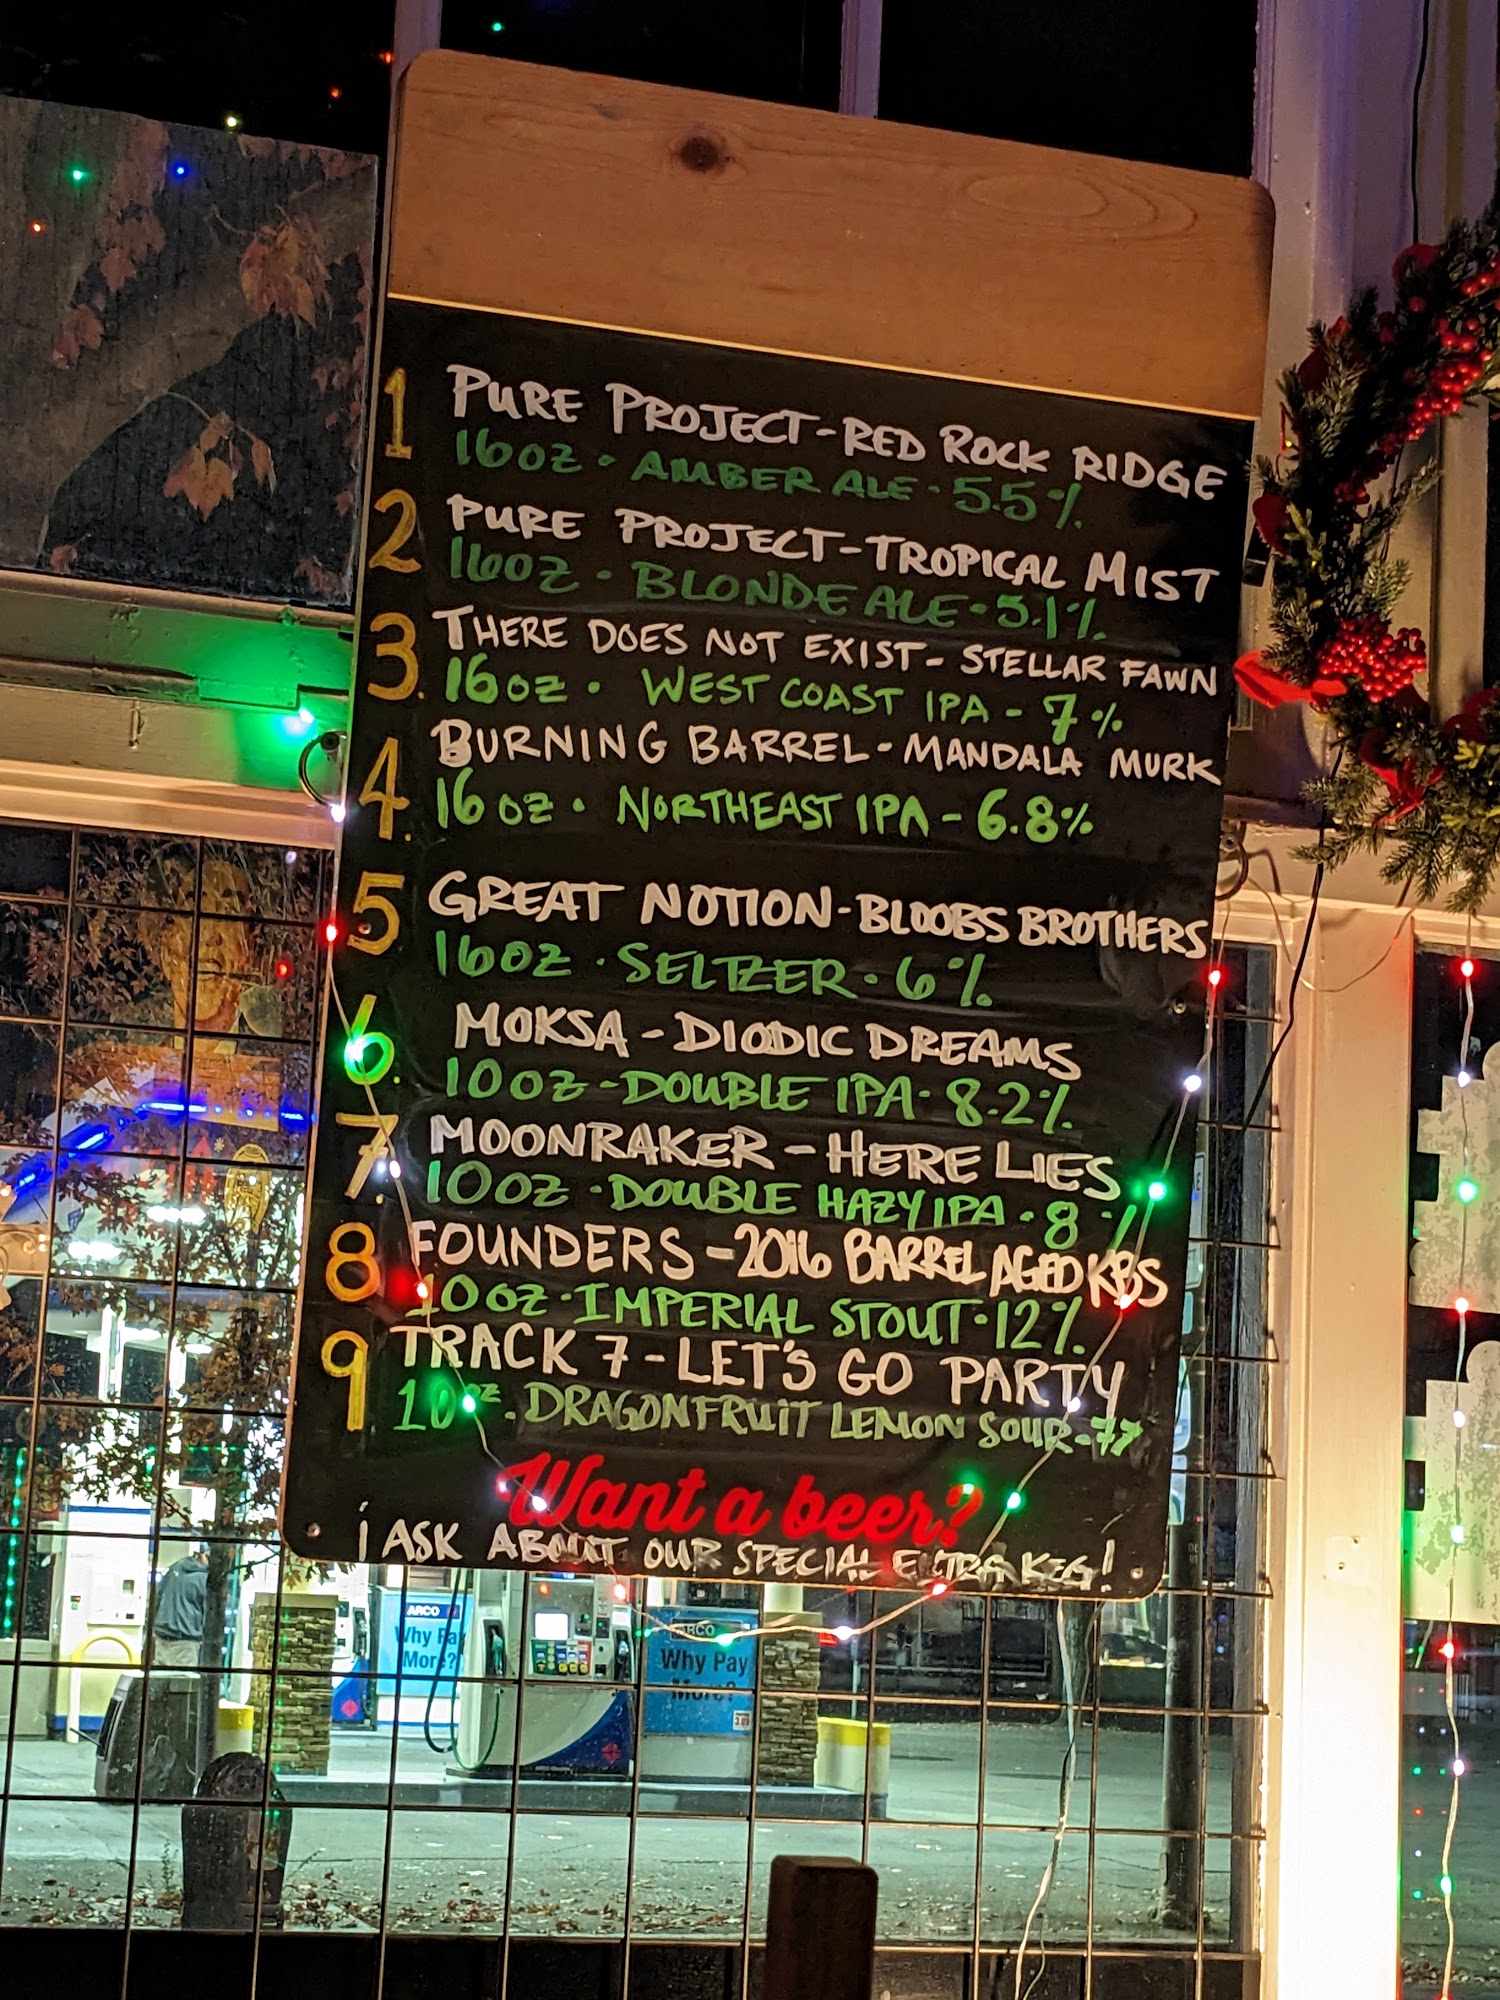 1 PURE PROJECT-RED ROCK RIDGE
16OZ · AMBER ALE · 5.5%
2 PURE PROJECT-TROPICAL MIST
16OZ · BLONDE ALE · 5.1%
3. THERE DOES NOT EXIST - STELLAR FAWN
16OZ · WEST COAST IPA - 7%
4. BURNING BARREL - MANDALA MURK
16OZ · NORTHEAST IPA - 6.8%
5. GREAT NOTION-BLOOBS BROTHERS
16OZ · SELTZER · 6%
6. MOKSA - DIODIC DREAMS
10OZ - DOUBLE IPA · 8.2%
7. MOONRAKER - HERE LIES
10OZ · DOUBLE HAZY IPA · 8%
8 FOUNDERS - 2016 BARREL AGED KBS
10OZ · IMPERIAL STOUT · 12%
9 TRACK 7 - LET'S GO PARTY
10OZ. DRAGONFRUIT LEMON SOUR - 7%
Want a beer?
¡ ASK ABOUT OUR SPECIAL EXTRA KEG!
ARCO
Why Pay
More?
ARCO
Why Pay
More?